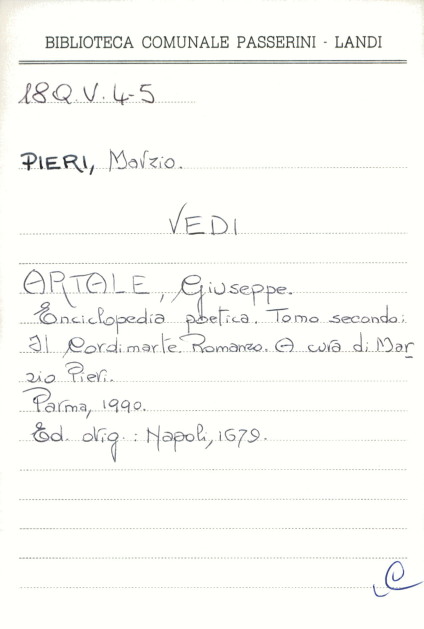 BIBLIOTECA COMUNALE PASSERINI - LANDI
18Q.V.4-5
PIERI, Marzio.
VEDI
ARTALE, Giuseppe.
Enciclopedia poetica. Tomo secondo:
Il Cordimarte. Romanzo. A cura di Mar
zio Pieri.
Parma, 1990.
Ed. orig.: Napoli, 1679.
C